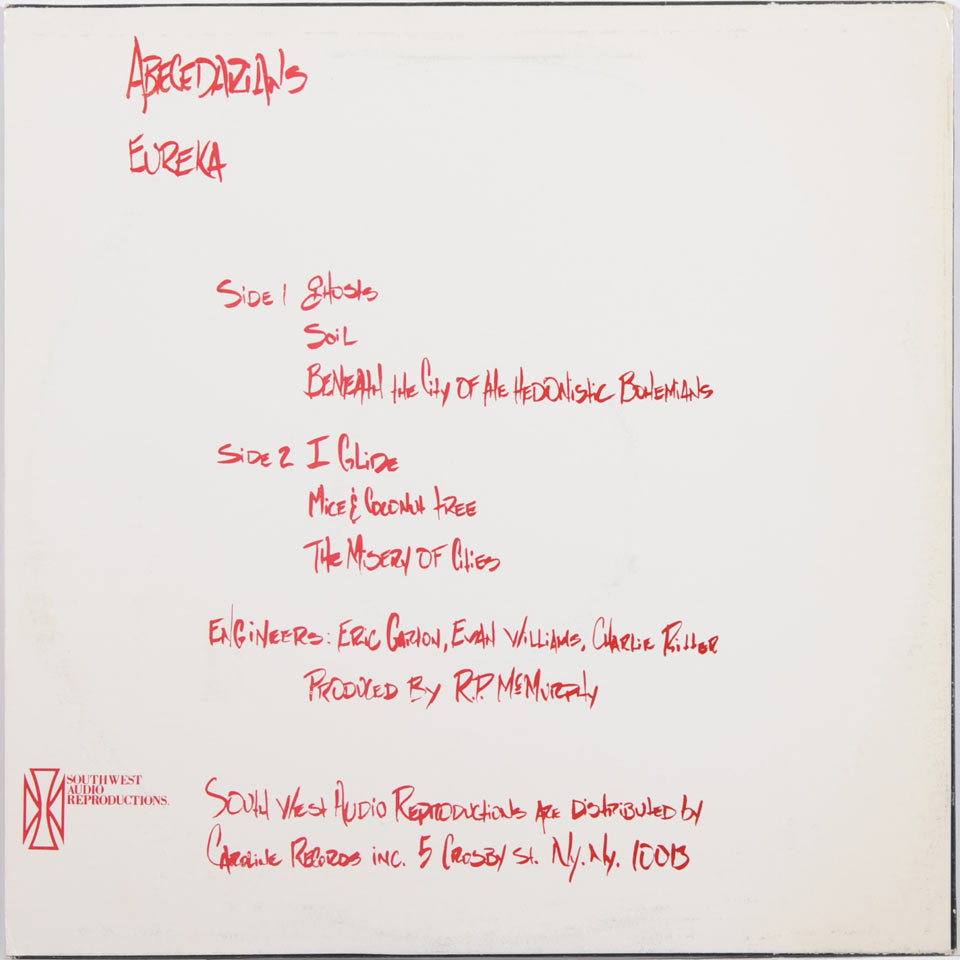 ABECEDARIANS
EUREKA
SiDE 1 GHosts
SoiL
BENEATH the City OF tHE HEDONistiC BOHEMIANS
SiDE 2 I GLiDE
MiCE & COCONut tREE
THE MiSERY OF CitiES
ENGiNEERS: ERiC GARTON, EVAN WiLLiAMS, CHARLiE RittER
PRODUCED By R.P. McMURPHy
SOUTHWEST
AUDIO
REPRODUCTIONS.
SOUTH WESt AUDiO REPRODUCtiONS ARE DistRibUtED by
CAROLiNE RECORDS iNC. 5 CROSBY St. Ny. Ny. 10013